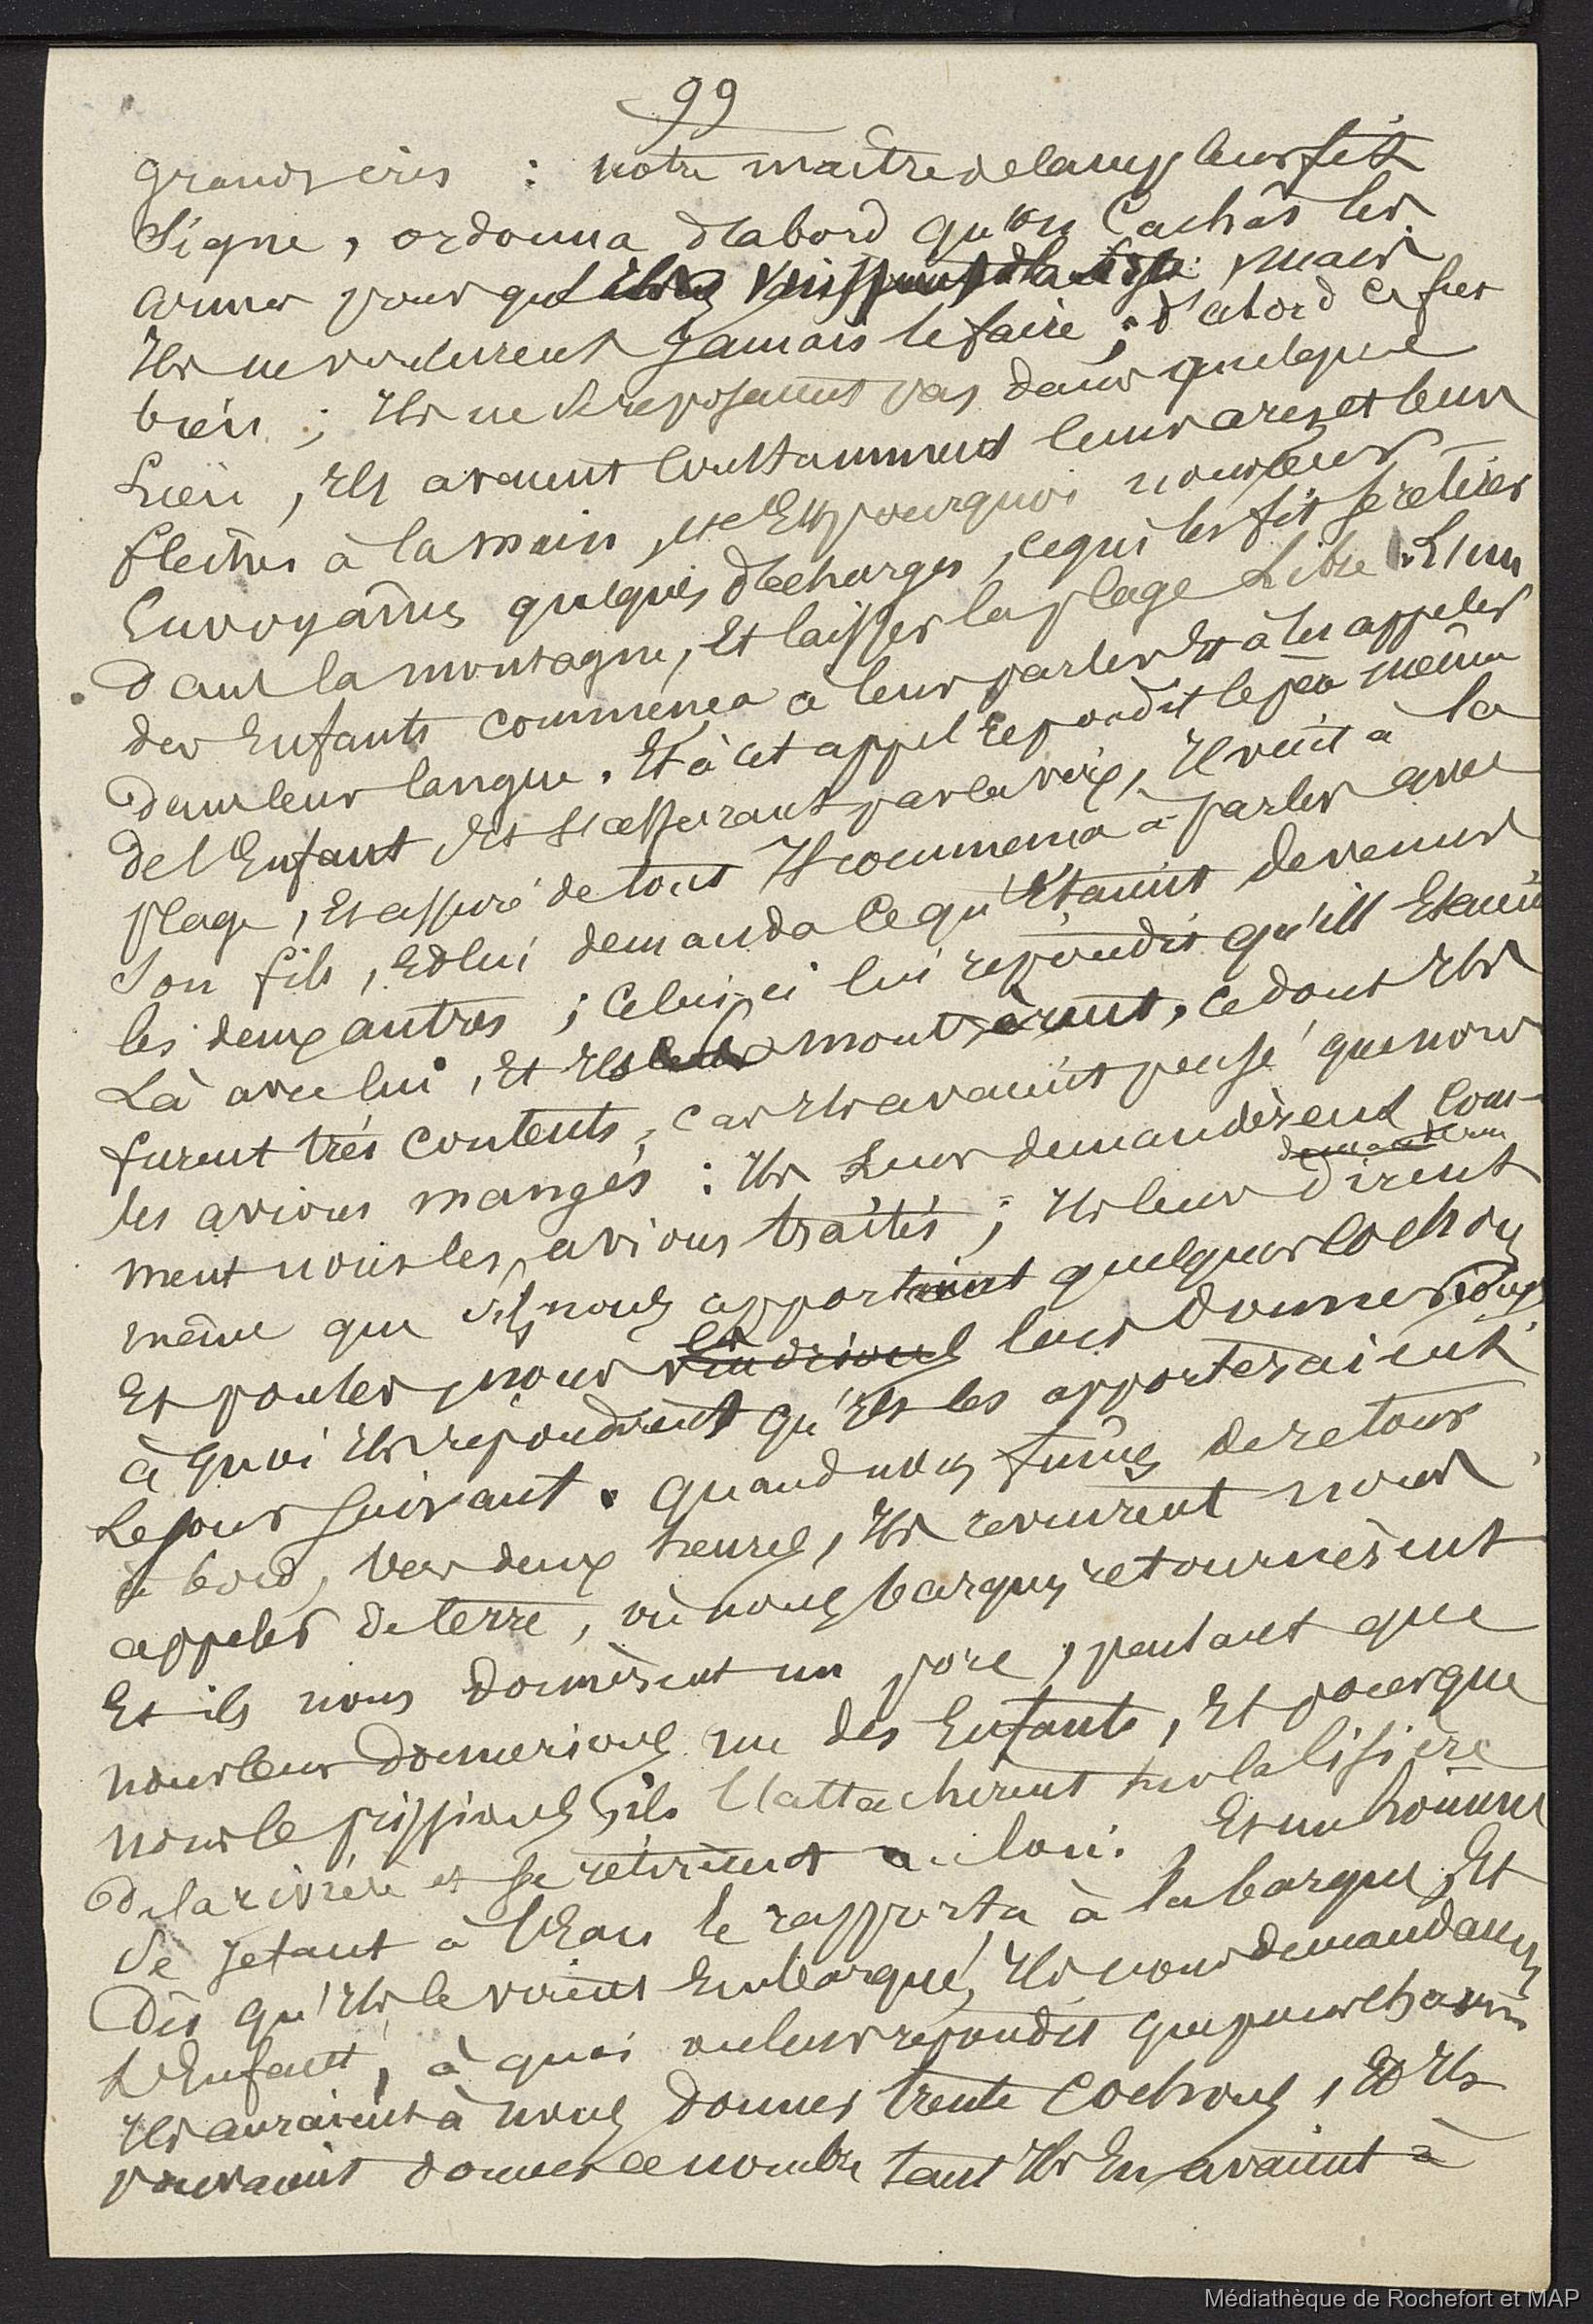 99
grands cris : notre maître de camp leur fit
Signe, ordonna d'abord qu'on Cachât les
armes pour qu' mais
Ils ne voulurent Jamais le faire ; d'abord ce fut
bien ; Ils ne se reposaient pas dans quelque
Lieu, Ils avaient constamment leurs arcs et leurs
flèches à la main, C'Est pourquoi nous leur
Envoyâmes quelques décharges, ce qui les fit se retirer
dans la montagne, Et laisser la plage Libre. L'un
des Enfants commença à leur parler Et à les appeler
dans leur langue. Et à cet appel répondit le père même
de l'Enfant, Et s'assurant par la voix, Il vint à la
plage, Et assuré de tout Il commença à parler avec
Son fils, Et lui demanda Ce qu'Etaient devenus
les deux autres ; Celui-ci lui répondit qu'ils Etaient
Là avec lui, Et Ils montrèrent, ce dont Ils
furent très contents, car Ils avaient pensé que nous
les avions mangés : Ils Leur demandèrent Com-
demandèrent
ment nous les avions traités ; Ils leur dirent
même que s'ils nous apportaient quelques cochons
Et poules, nous les rendrions leur donnerions
à quoi Ils répondirent qu'Ils les apporteraient
Le jour suivant. Quand nous fûmes de retour
à bord, Vers deux heures, Ils revinrent nous
appeler de terre, où nous barques retournèrent
Et ils nous donnèrent un porc, pensant que
nous leur donnerions un des Enfants, Et pour que
nous le prissions, ils l'attachèrent sur la lisière
de la rivière et se retirèrent au loin. Et un homme
se jetant à l'Eau le rapporta à la barque, Et
Dès qu'Ils le virent Embarqué, Ils nous demandaient
L'Enfant, à quoi on leur répondit que pour chacun
Ils auraient à nous donner trente Cochons, Et Ils
pouvaient donner ce nombre tant Ils En avaient à
Médiathèque de Rochefort et MAP